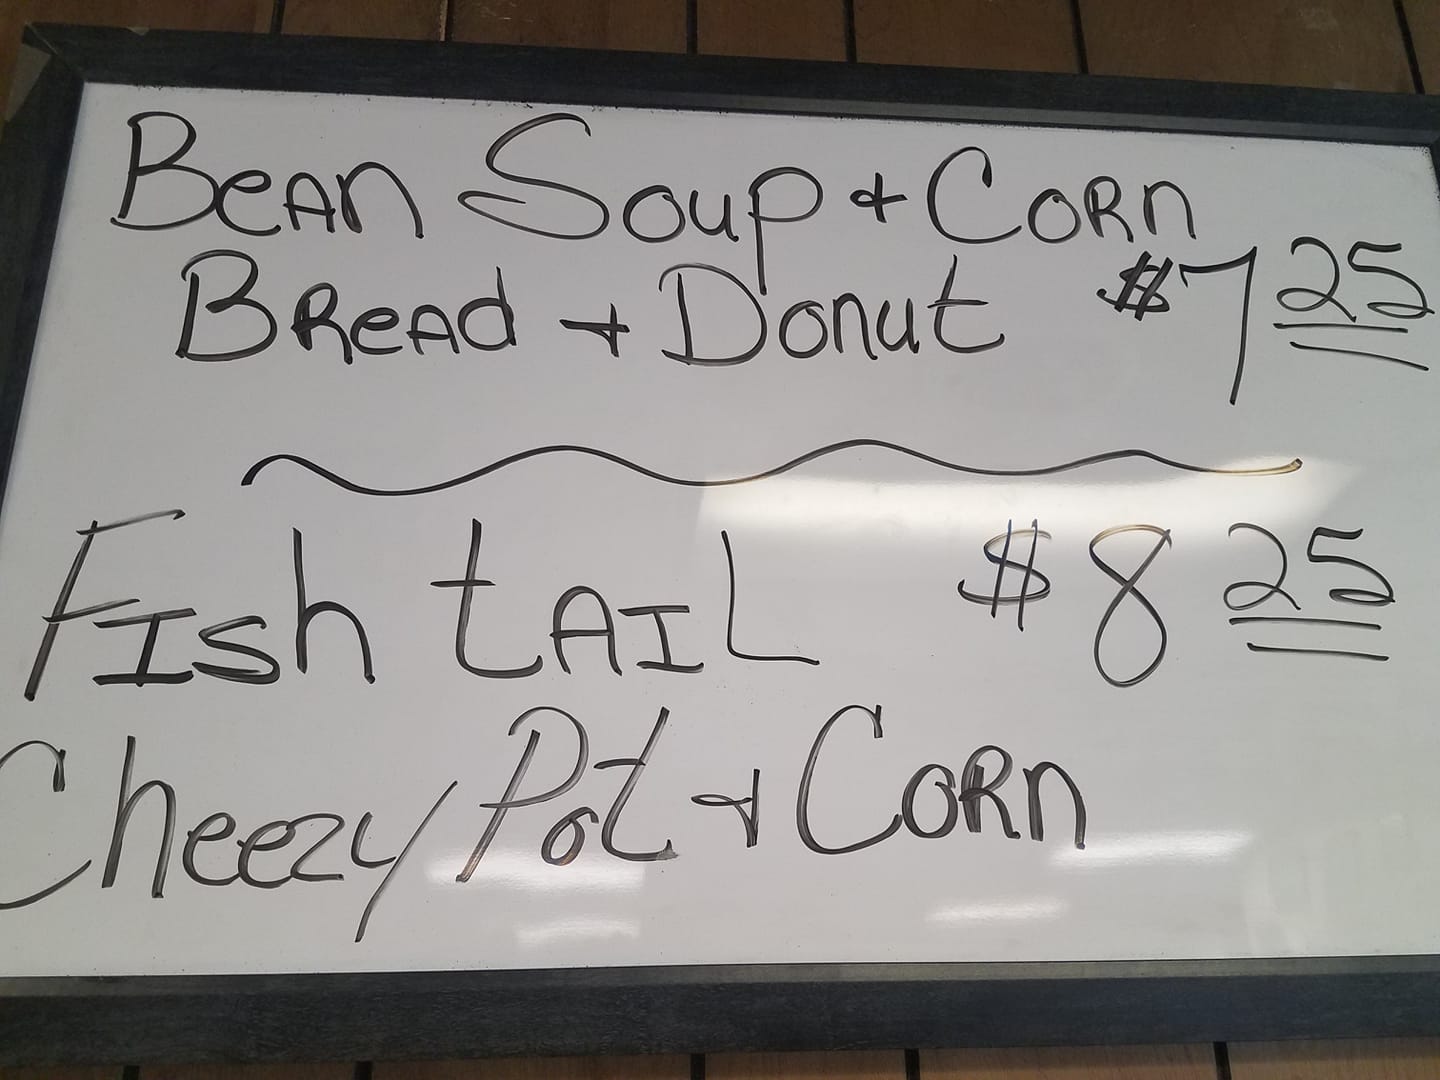 Bean Soup & Corn
Bread & Donut $7 25
Fish tail $8 25
Cheezy Pot & Corn